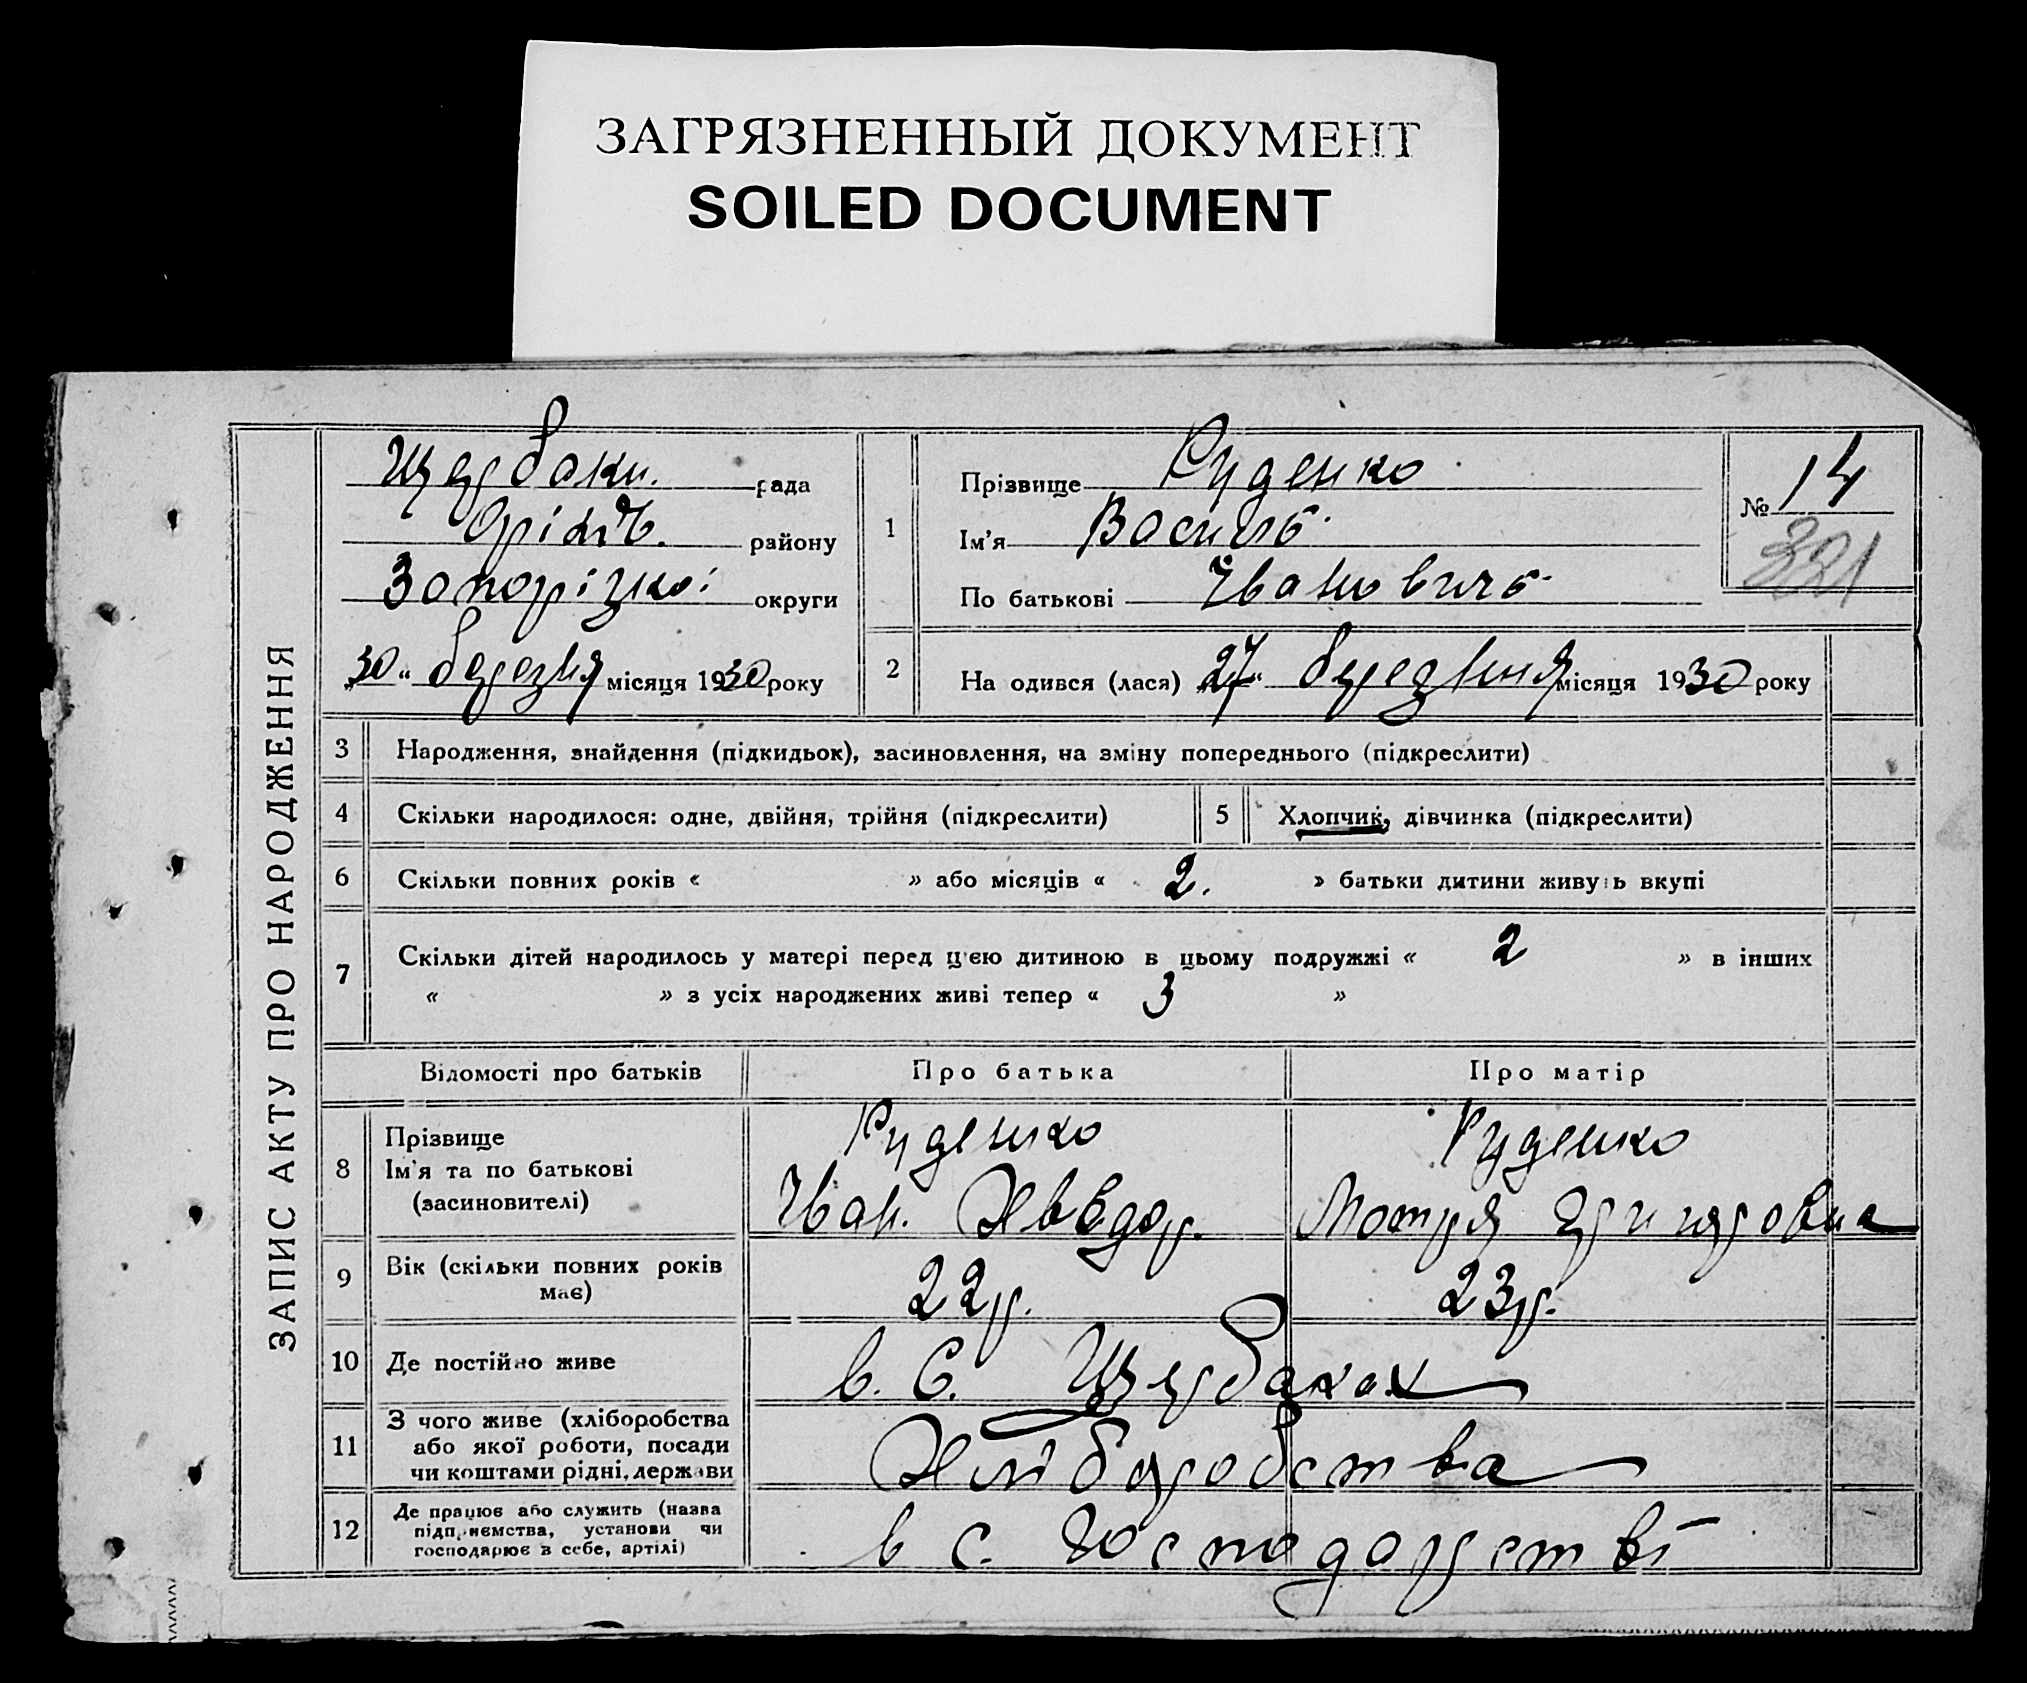 ЗАГРЯЗНЕННЫЙ ДОКУМЕНТ
SOILED DOCUMENT
ЗАПИС АКТУ ПРО НАРОДЖЕННЯ
Щербаки. рада
Оріхів. району
Запорізької округи
„30“ березня місяця 1930 року
1 Прізвище Руденко
Ім'я Василь
По батькові Іванович
№ 14
321
2 На одився (лася) „27“ березня місяця 1930 року
3 Народження, знайдення (підкидьок), засиновлення, на зміну попереднього (підкреслити)
4 Скільки народилося: одне, двійня, трійня (підкреслити)
5 Хлопчик, дівчинка (підкреслити)
6 Скільки повних років « » або місяців « 2. » батьки дитини живуть вкупі
7 Скільки дітей народилось у матері перед цією дитиною в цьому подружжі « 2 » в інших
« » з усіх народжених живі тепер « 3 »
Відомості про батьків Про батька Про матір
8 Прізвище Руденко Руденко
Ім'я та по батькові
(засиновителі) Іван. Мотря
9 Вік (скільки повних років
має) 22р. 23р.
10 Де постійно живе в. с. Щербаках
11 З чого живе (хліборобства
або якої роботи, посади
чи коштами рідні, держави Хліборобства
12 Де працює або служить (назва
підприємства, установи чи
господарює в себе, артілі) в с. господарстві